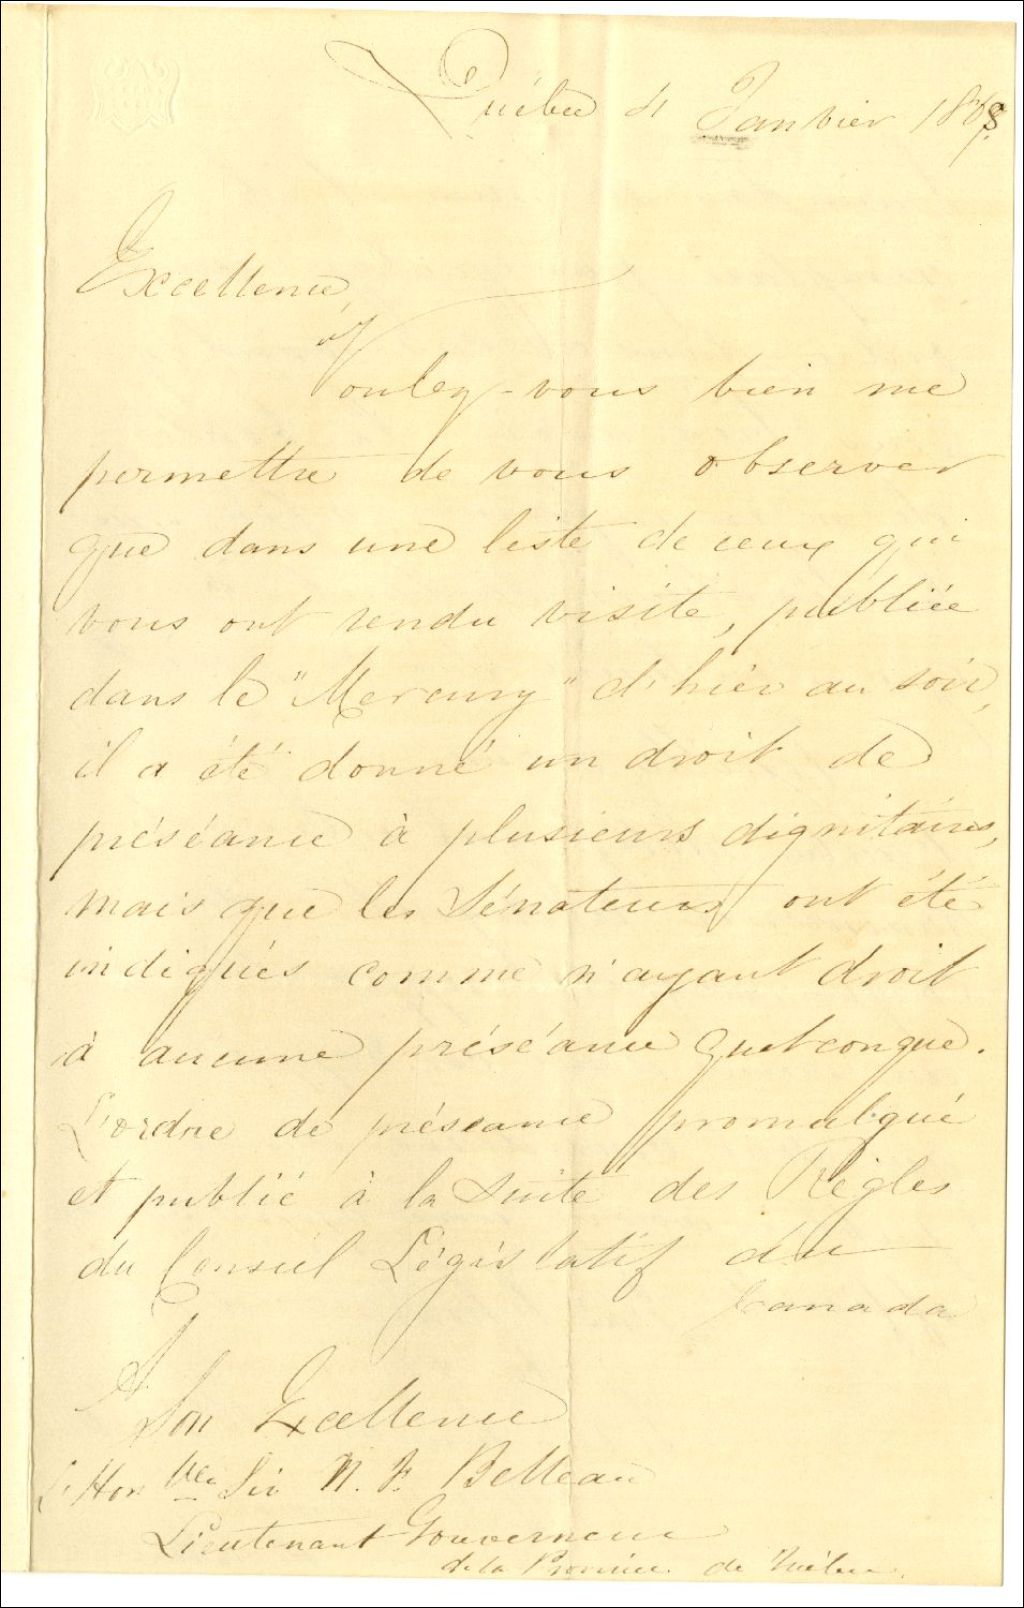 Québec 4 Janvier 1868.
Excellence,
Voulez-vous bien me
permettre de vous observer
que dans une liste de ceux qui
vous ont rendu visite, publiée
dans le "Mercury" d'hier au soir,
il a été donné un droit de
préséance à plusieurs dignitaires,
mais que les Sénateurs ont été
indiqués comme n'ayant droit
à aucune préséance quelconque.
L'ordre de préséance promulgué
et publié à la suite des Règles
du Conseil Législatif du
Canada
A
Son Excellence
L'Honble Sir N. F. Belleau
Lieutenant Gouverneur
de la Province de Québec.